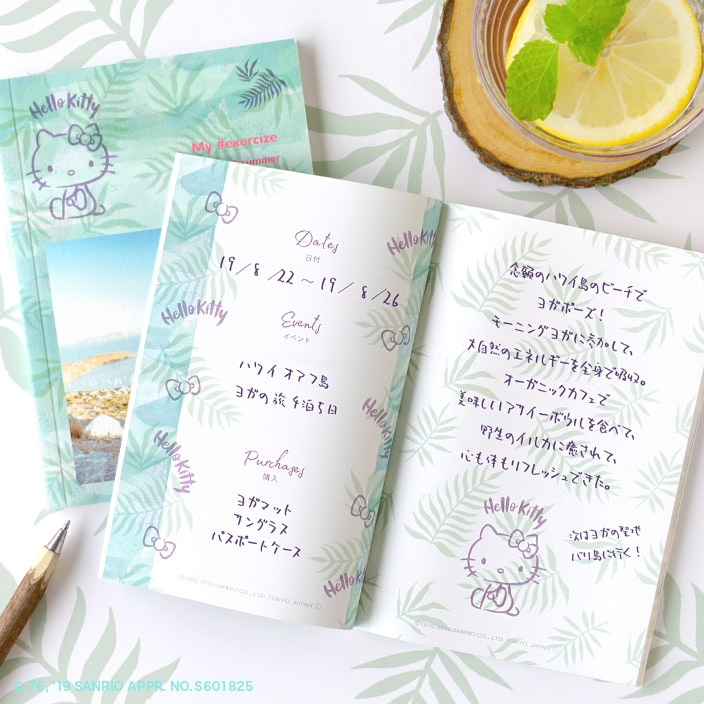 Hello Kitty
My #exercize
summer
Hello Kitty
Dates
日付
19/8/22〜19/8/26
Hello Kitty
Events
イベント
ハワイ オアフ島
ヨガの旅 4泊5日
Hello Kitty
Hello Kitty
Purchases
購入
ヨガマット
サングラス
パスポートケース
Hello Kitty
©1976, 2019 SANRIO CO., LTD. TOKYO, JAPAN Ⓛ
念願のハワイ島のビーチで
ヨガポーズ!
モーニングヨガに参加して、
大自然のエネルギーを全身で吸収。
オーガニックカフェで
美味しいアサイーボウルを食べて、
野生のイルカに癒されて、
心も体もリフレッシュできた。
Hello Kitty
次はヨガの聖地
バリ島に行く!
©1976, 2019 SANRIO CO., LTD. TOKYO, JAPAN Ⓛ
© '76, '19 SANRIO APPR. NO.S601825